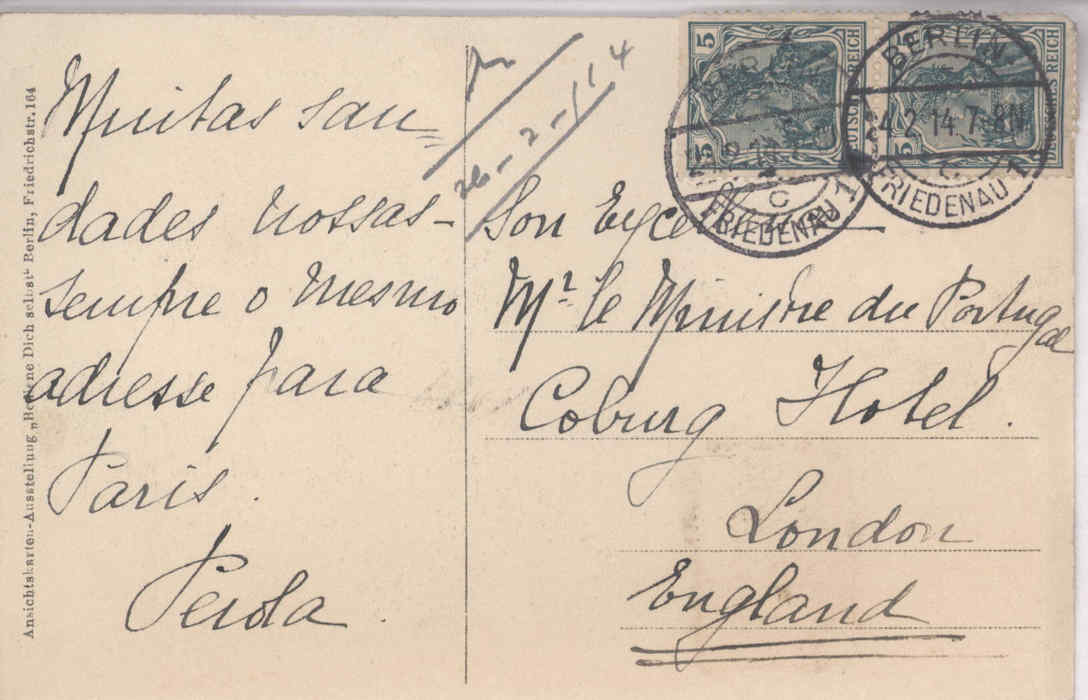 Muitas sau=
dades nossas-
sempre o mesmo
adresse para
Paris.
Perola.
26-2-914
Son Excel
Mr. le Ministre du Portugal
Coburg Hotel.
London
England
5 5
DEUTSCHES REICH
BERLIN
2.14.7-8N
FRIEDENAU 1
C
FRIEDENAU 1
Ansichtskarten-Ausstellung „Bediene Dich selbst“ Berlin, Friedrichstr. 164